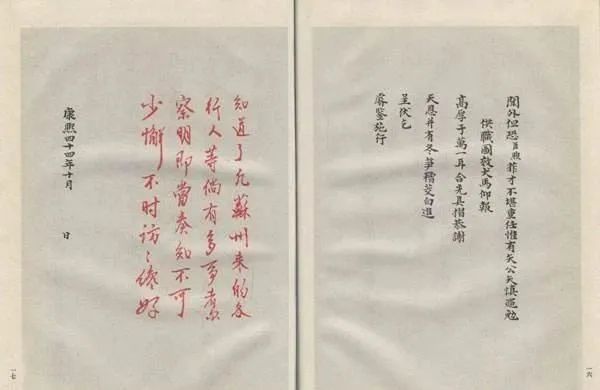 閫外但恐臣煦菲才不堪重任惟有矢公矢慎黽勉
供職圖效犬馬仰報
高厚于萬一耳合先具摺恭謝
天恩并有冬笋糟茭白進
呈伏乞
睿鑒施行
一六
知道了凡蘇州来的各
行人等倘有多事者
察明即當奏知不可
少懈不时访々纔好
康熙四十四年十月 日
一七